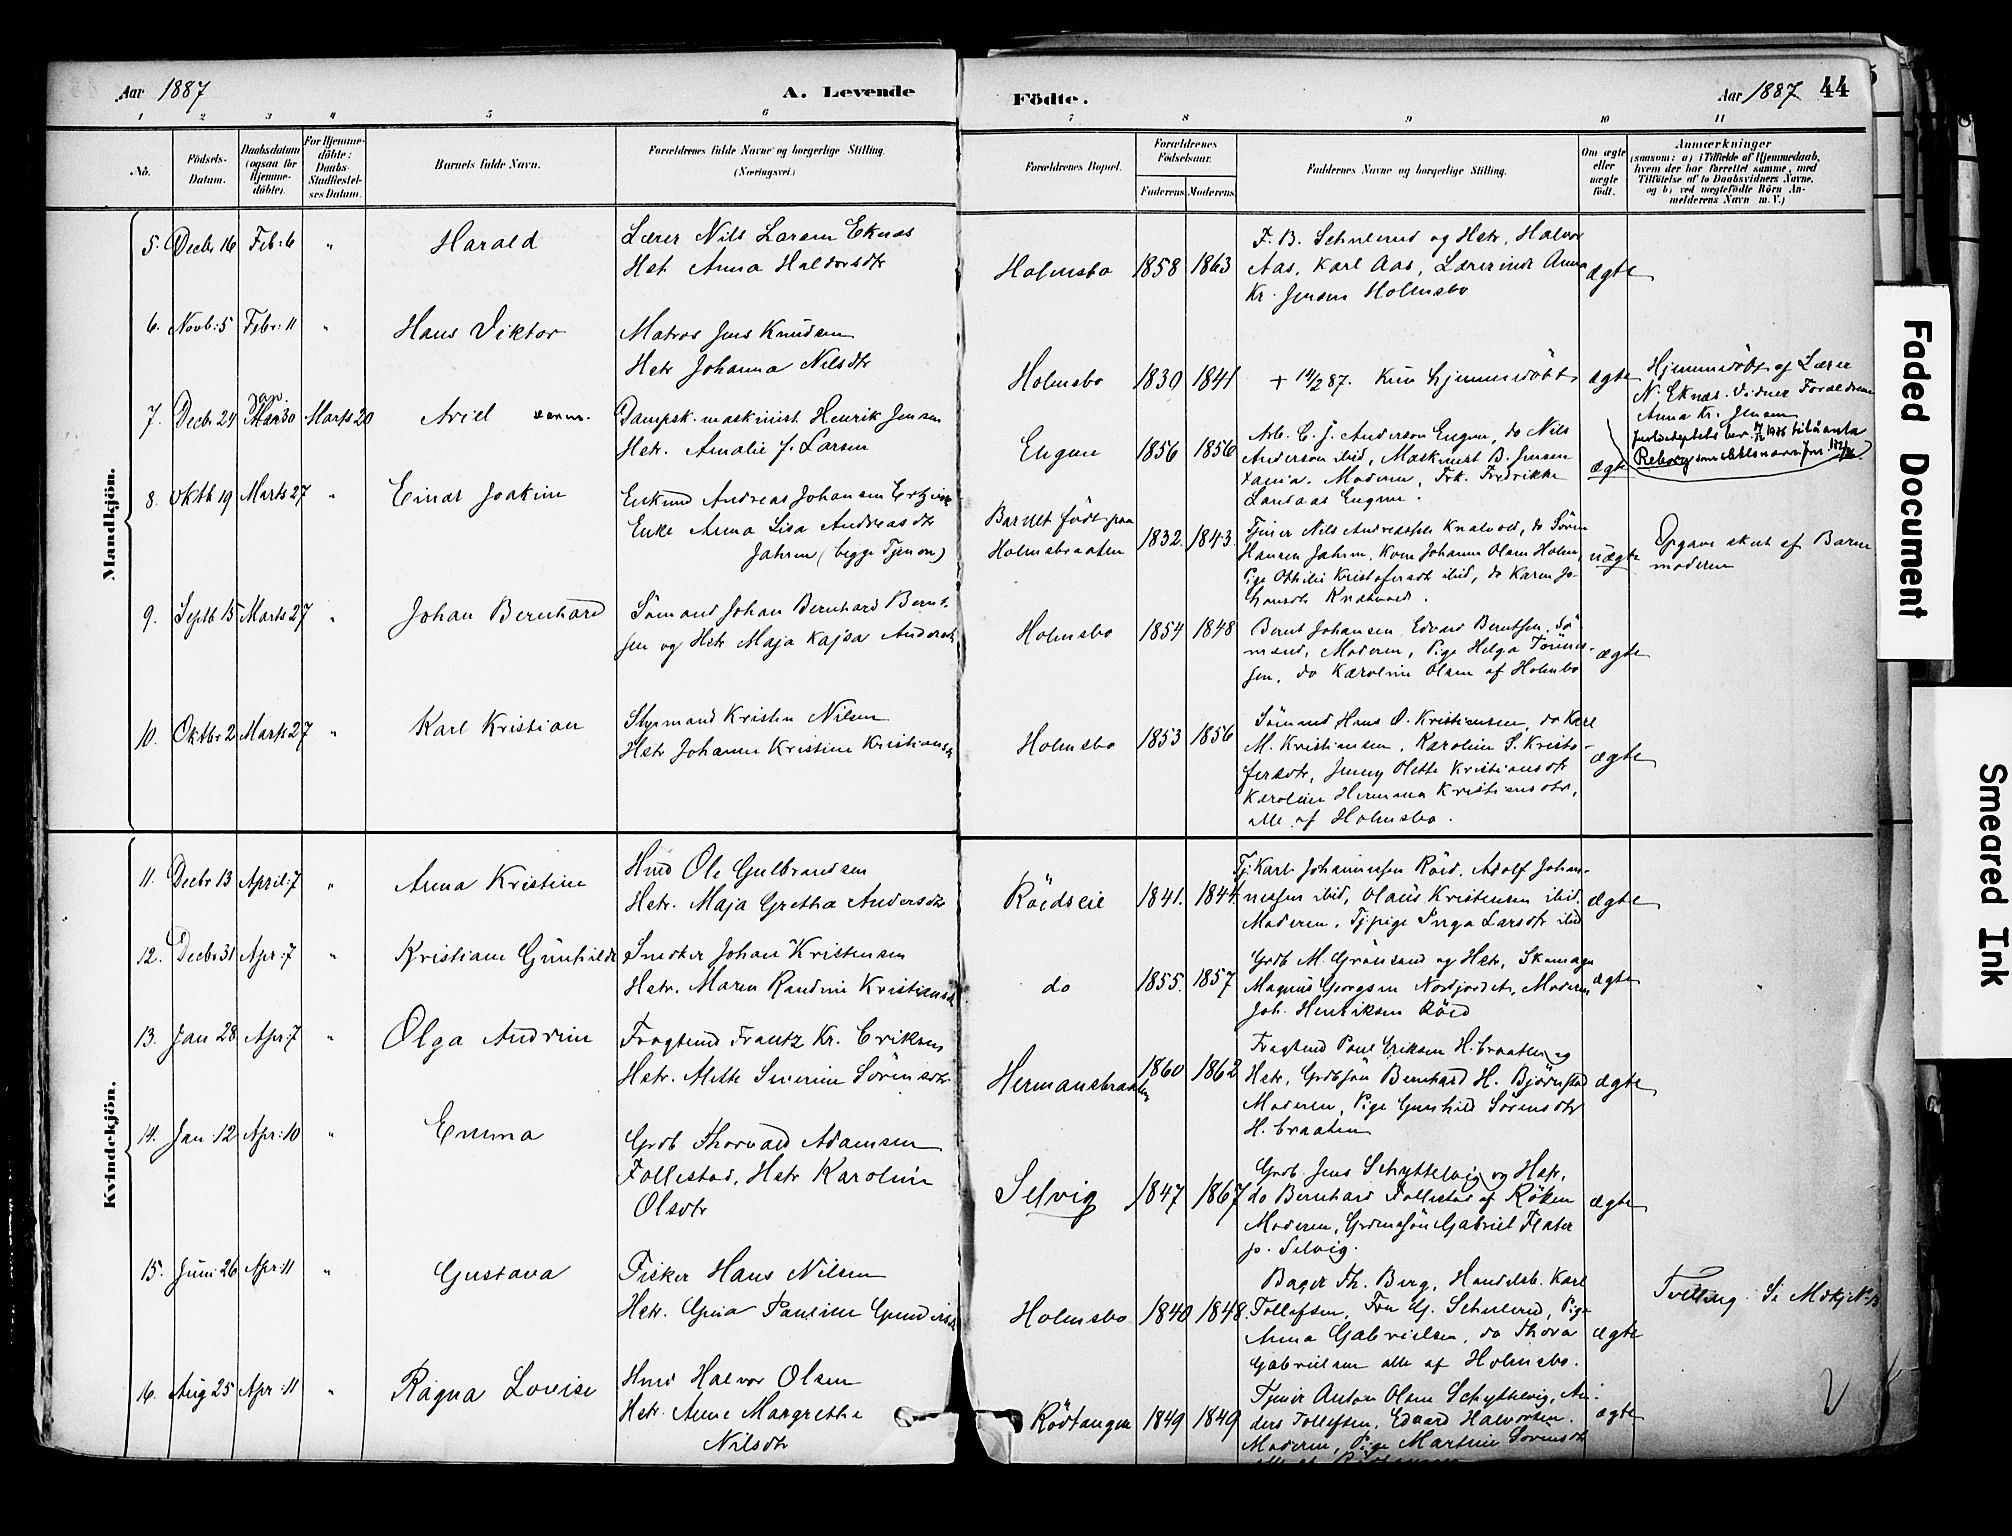 Aar 1887
A. Levende
Födte.
Aar 1887 44
1 2 3 4 5 6 7 8 9 10 11
No.
Födsels-
Datum.
Daabsdatum
(ogsaa for
Hjemme-
döbte).
For Hjemme-
döbte:
Daabs-
Stadfæstel-
ses Datum.
Barnets fulde Navn.
Forældrenes fulde Navne og borgerlige Stilling.
(Næringsvei.)
Forældrenes Bopæl.
Forældrenes
Födselsaar.
Faderens Moderens
Faddernes Navne og borgerlige Stilling.
Om ægte
eller
uægte
födt.
Anmærkninger
(saasom: a) i Tilfælde af Hjemmedaab,
hvem der har forrettet samme, med
Tilföielse af to Daabsvidners Navne,
og b) ved uægtefödte Börn An-
melderens Navn m. V.)
Mandkjön.
5. Decbr 16 Feb: 6 " Harald
Lærer Nils Larsen Eknæs
Hst Anna Haldorsdtr
Holmsbo 1858 1863
F. B. Schulerud og Hstr, Halvor
Aas, Karl Aas, Lærerinde Anna
Kr. Jensen Holmsbo
ægte
6. Novb: 5 Febr: 11 " Hans Viktor
Matros Jens Knudsen
Hstr Johanna Nilsdtr
Holmsbo 1830 1841
+ 14/2 87. Kun hjemmedöbt
ægte
Hjemmedöbt af Lærer
N. Eknæs. Vidner Forældrene
Anna Kr. Jensen
7. Decbr 24 Jan. 30 Marts 20 Ariel
Dampsk. maskinist Henrik Jensen
Hstr. Amalie J. Larsen
Engene 1856 1856
Arb. C. J. Anderson Engene, do Nils
Anderson ibid, Maskinist B. Jensen
Xania. Moderen, Frk. Fredrikke
Landaas Engene.
ægte
Reborg
8. Oktb 19 Marts 27 " Einar Joakim
Enkemd Andreas Johansen
Enke Anna Lisa Andreasdtr
Jahren (begge Tjmon)
Barnet födt paa
Holmsbraaten
1832. 1843.
Hansen Jahren, Kone Johanne Olsen Holm,
Pige Othilie Kristofersdtr ibid, do Karen Jo-
hansdtr Knatvold.
uægte
Opgave skeet af Barne
moderen
9. Septb 15 Marts 27 " Johan Bernhard
Sömand Johan Bernhard Bernt-
sen og Hstr Maja Kajsa Andersdtr
Holmsbo 1854 1848
Bernt Johansen, Edvard Berntsen, Sö-
mænd, Moderen, Pige Helga Tönnes-
sen, do Karoline Olsen af Holmsbo
ægte
10. Oktbr 2 Marts 27 " Karl Kristian
Styrmand Kristen Nilsen
Hstr Johanne Kristine Kristiansdtr
Holmsbo 1853 1856
Sömænd Hans O. Kristiansen, do Karl
M. Kristiansen, Karoline S. Kristo-
fersdtr, Jenny Olette Kristiansdtr
Karoline Hermana Kristiansdtr,
alle af Holmsbo.
ægte
Kvindekjön.
11. Decbr 13 April: 7 " Anna Kristine
Hmd Ole Gulbrandsen
Hstr. Maja Gretha Andersdtr
Rödseie 1841. 1844.
Tj. Karl Johannesen Röed, Adolf Johan-
nessen ibid, Olaus Kristensen ibid.
Moderen, Tjpige Inga Larsdtr ibid
ægte
12. Decbr 31 Apr: 7 " Kristiane Gunhilde
Smeder Johan Kristensen
Hstr. Maren Randine Kristiansdtr
do 1855. 1857
Grdb M. Grönsand og Hstr, Skomager
Magnus Georgsen Nordjordet, Moderen
Joh. Henriksen Röed
ægte
13. Jan 28 Apr: 7 " Olga Andrine
Fragtemd Frantz Kr. Eriksen
Hstr. Mette Severine Sörensdtr
Hermansbraaten 1860 1862
Fragtmd Paul Eriksen H.braaten og
Hstr, Grdbsön Bernhard H. Björnstad
Moderen, Pige Gunhild Sörensdtr
H.braaten
ægte
14. Jan 12 Apr: 10 " Emma
Grdb Thorvald Adamsen
Follestad, Hstr Karoline
Olsdtr
Selvig 1847 1867
Grdb. Jens Schyttelvig og Hstr,
do Bernhard Follestad af Röken
Moderen, Grdmdsön Gabriel Flater
p. Selvig.
ægte
15. Juni 26 Apr: 11 " Gustava
Fisker Hans Nilsen
Hstr. Gina Pauline Gundersdtr
Holmsbo 1840 1848.
Bager Th. Berg, Handelsb. Karl
Tollefsen, Fru Schulerud, Pige
Anna Gabrielsen, do Thora
Gabrielsen alle af Holmsbo.
ægte
Tvilling Se Mdkj No 13
16. Aug 25 Apr: 11 " Ragna Lovise
Hmd Halvor Olsen
Hstr. Anne Margrethe
Nilsdtr
Rödtangen 1849 1849
Tjener Anton Olsen Schyttelvig, An-
ders Tollefsen, Edvard Halvorsen.
Moderen, Pige Martine Sörensdtr
ægte
Faded Document
Smeared Ink